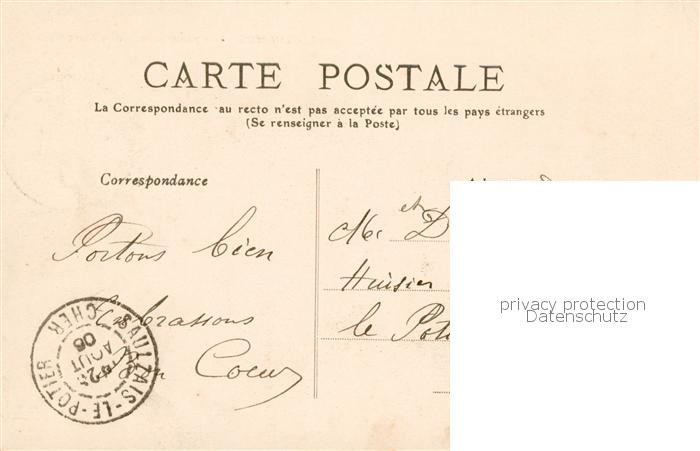 CARTE POSTALE
La Correspondance au recto n'est pas acceptée par tous les pays étrangers
(Se renseigner à la Poste)
Correspondance
Portons bien
Embrassons
Bien Coeur
Mr et D
Huisier
le Poti
SAULZAIS-LE-POTIER
CHER
25
AOUT
06
privacy protection
Datenschutz